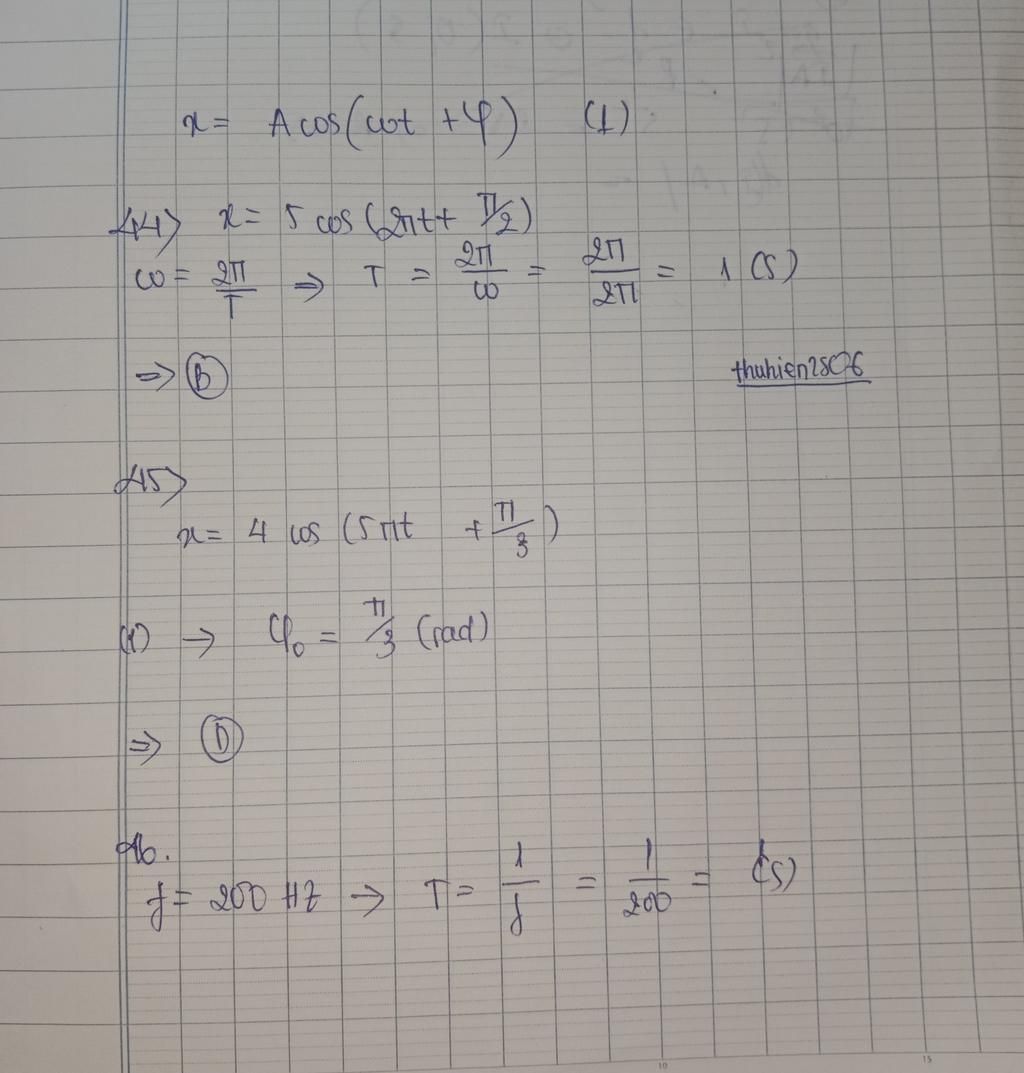 x = A cos(ωt + φ) (1)
14> x = 5 cos (2πt + π/2)
ω = 2π/T ⇒ T = 2π/ω = 2π/2π = 1 (s)
⇒ B
thuhien2506
15>
x = 4 cos (5πt + π/3)
(1) → φ₀ = π/3 (rad)
⇒ D
16.
f = 200 Hz → T = 1/f = 1/200 = (s)
10 15